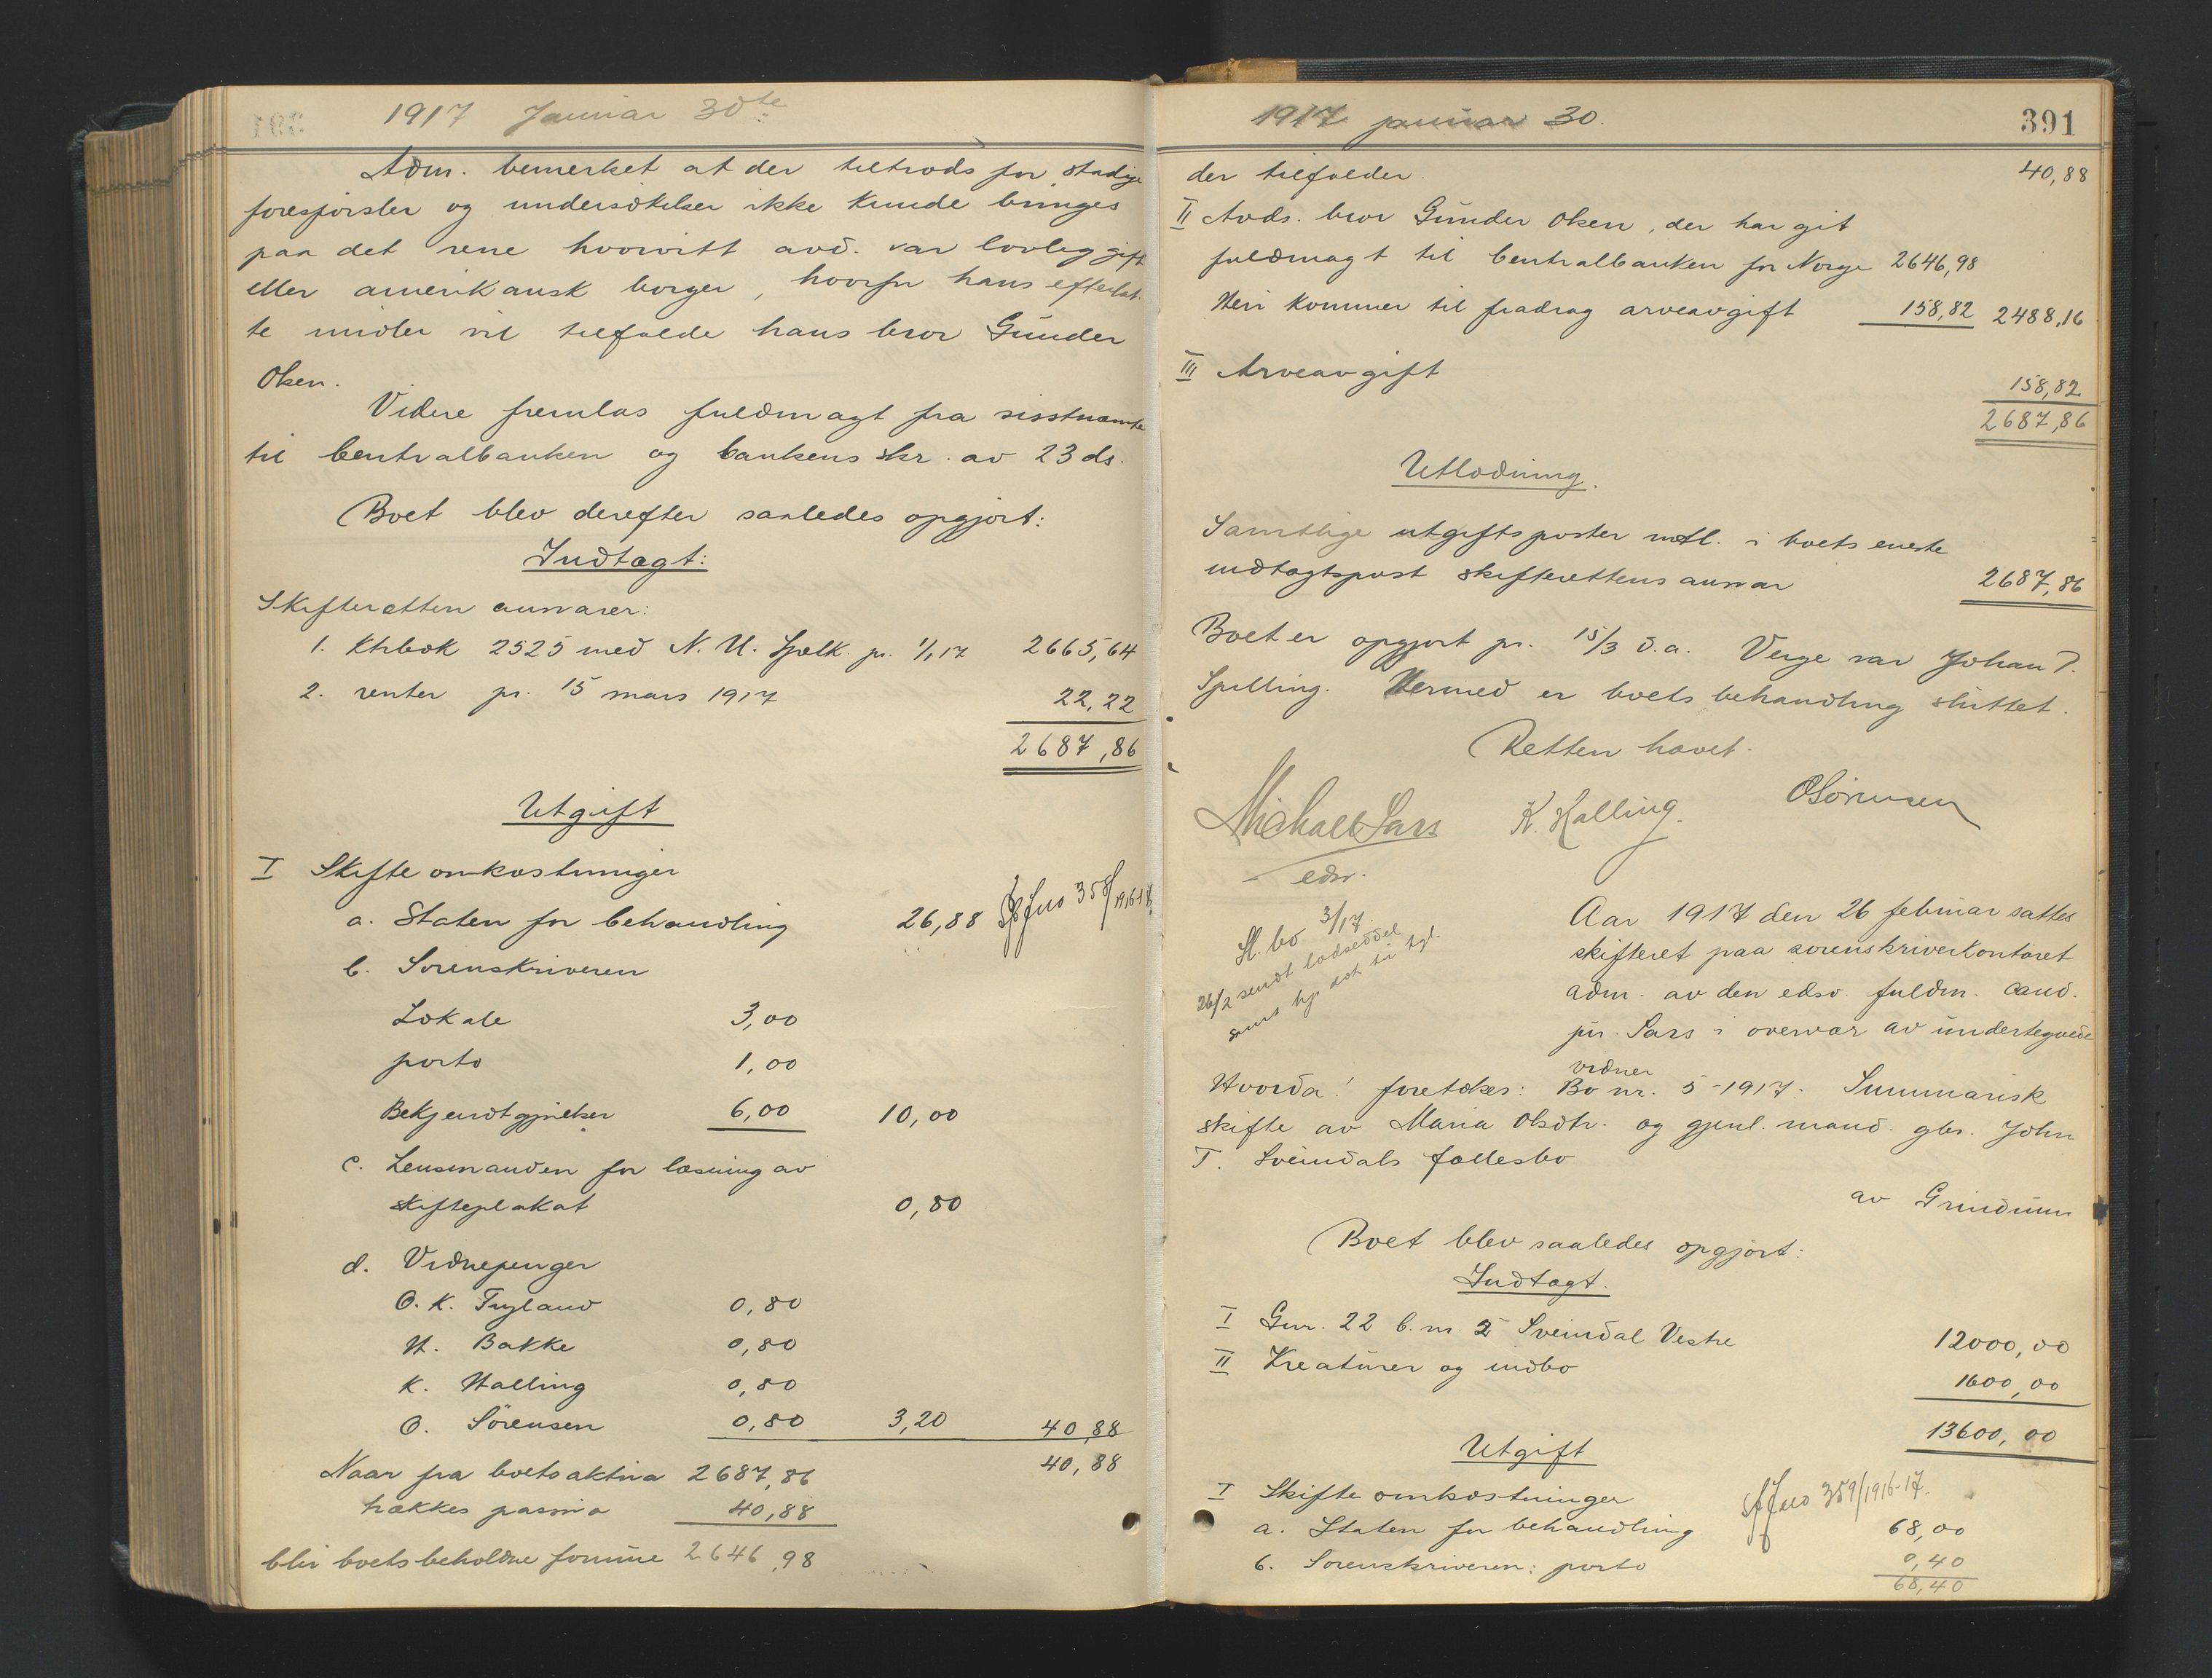 1917 Januar 30te
Adm. bemerket at der tiltrods for stadige
forespørsler og undersøkelser ikke kunde bringes
paa det rene hvorvitt avd. var lovlig gift
eller amerikansk borger, hvorfor hans efterlat-
te midler vil tilfalde hans bror Gunder
Oken.
Videre fremlas fuldmagt fra sisstnæmte
til Centralbanken og bankens skr. av 23 ds.
Boet blev derefter saaledes opgjort:
Indtægt:
Skifteretten ansvarer:
1. Ktrbok 2525 med N. U. Spbk. pr. 1/1 17 2665,64
2. renter pr. 15 mars 1917 22,22
2687,86
Utgift
I Skifteomkostninger
a. Staten for behandling 26,88 358/1916-17
b. Sorenskriveren
Lokale 3,00
porto 1,00
Bekjendtgjørelser 6,00 10,00
c. Lensmanden for læsning av
skifteplakat 0,80
d. Vidnepenger
O. K. Tryland 0,80
H. Bakke 0,80
K. Halling 0,80
O. Sørensen 0,80 3,20 40,88
40,88
Naar fra boets aktiva 2687,86
trækkes passiva 40,88
blir boets beholdne formue 2646,98
1917 januar 30.
391
der tilfalder 40,88
II Avds. bror Gunder Oken, der har git
fuldmagt til Centralbanken for Norge 2646,98
Heri kommer til fradrag arveavgift 158,82 2488,16
III Arveavgift
158,82
2687,86
Utlodning.
Samtlige utgiftsposter utl. i boets eneste
indtægtspost skifterettens ansvar 2687,86
Boet er opgjort pr. 15/3 d.a. Verge var Johan T.
Spilling. Hermed er boets behandling sluttet.
Retten hævet.
Michael Sars K. Halling. O Sørensen
edsv.
Sl. bo 3/17.
26/2 sendt lodseddel
Aar 1917 den 26 februar sattes
skifteret paa sorenskriverkontoret
adm. av den edsv. fuldm. cand.
jur. Sars i overvær av undertegnede
vidner
Hvorda! foretokes: Bo nr. 5-1917. Summarisk
skifte av Maria Olsdtr. og gjenl. mand gbr. John
T. Sveindals fællesbo
av Grindum
Boet blev saaledes opgjort:
Indtægt.
I Gnr. 22 b.nr. 2 Sveindal Vestre 12000,00
II Kreaturer og indbo 1600,00
13600,00
Utgift
I Skifteomkostninger 359/1916-17.
a. Staten for behandling 68,00
b. Sorenskriveren: porto 0,40
68,40